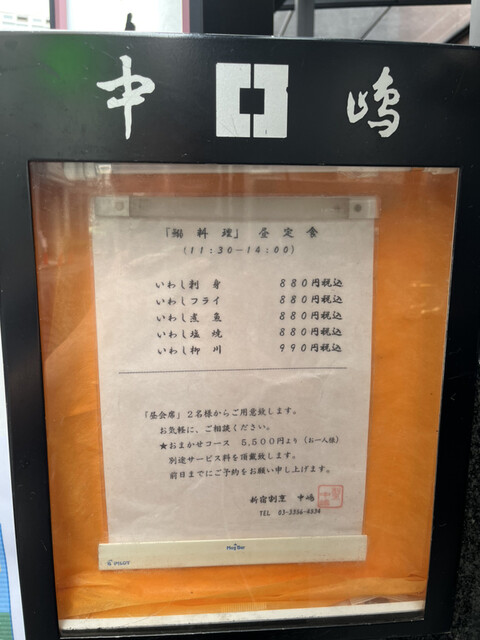 中 嶋
「鰯料理」 昼定食
(11:30−14:00)
いわし刺 身 880円税込
いわしフライ 880円税込
いわし煮 魚 880円税込
いわし塩 焼 880円税込
いわし柳 川 990円税込
「昼会席」2名様からご用意致します。
お気軽に、ご相談ください。
★おまかせコース 5,500円より(お一人様)
別途サービス料を頂戴致します。
前日までにご予約をお願い申し上げます。
新宿割烹 中嶋
TEL 03-3356-4534
MagBar
PILOT